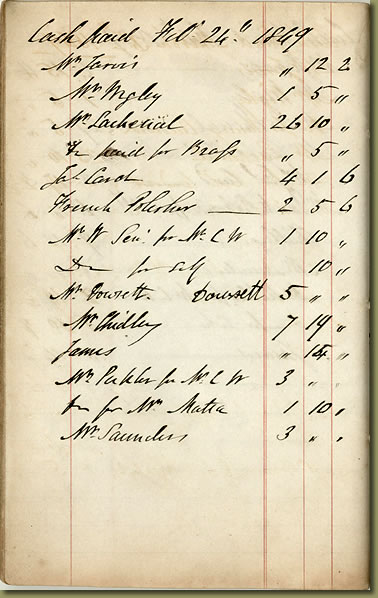 Cash paid Feb 24th 1849
Mr Jarvis " 12 2
Mr Wrgley 1 5 "
Mr 26 10 "
Do paid for Brass " 5 "
Jas Carot 4 1 6
French Polisher — 2 5 6
Mr W Senr for Mr C W 1 10 "
Do for self 10 "
Mr Dowsett Dowsett 5 " "
Mr Chidley 7 19 "
James " 15 "
Mr for Mr C W 3 " "
Do for Mr Matta 1 10 "
Mr Saunders 3 " "